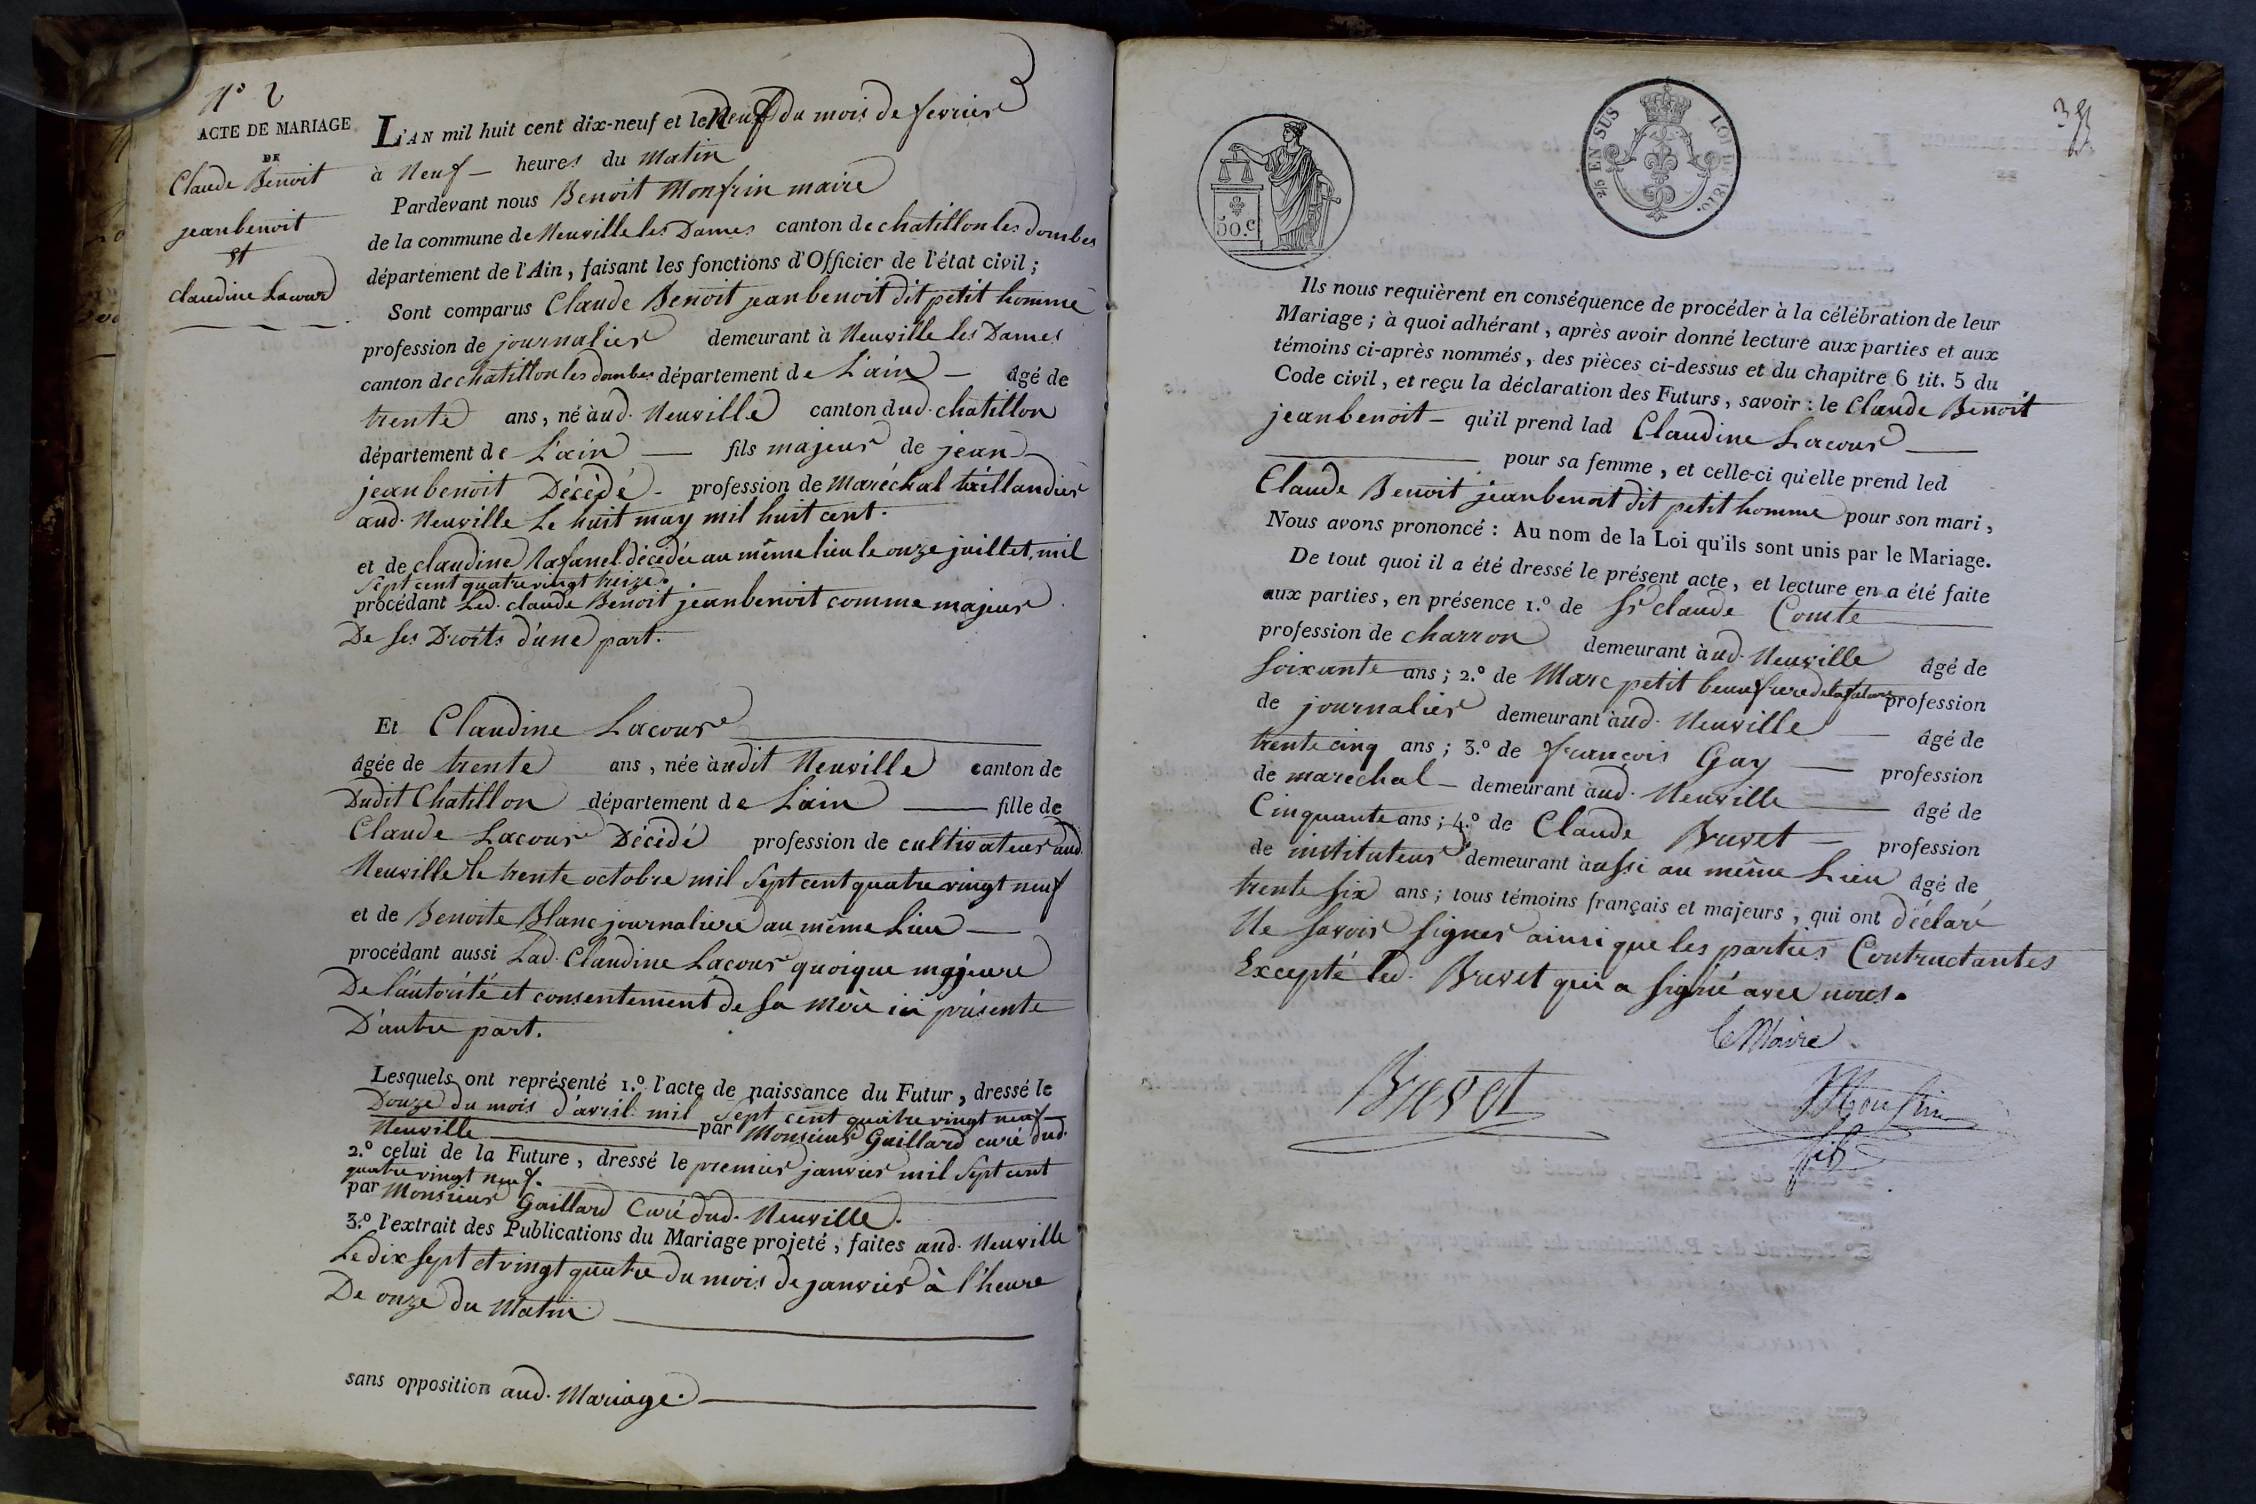 N° 2
ACTE DE MARIAGE
DE
Claude Benoit
jeanbenoit
et
claudine Lacour
L'AN mil huit cent dix-neuf et le Neuf du mois de fevrier
à Neuf — heures du Matin
Pardevant nous Benoit Monfrin maire
de la commune de Neuville les Dames canton de chatillon les dombes
département de l'Ain, faisant les fonctions d'Officier de l'état civil ;
Sont comparus Claude Benoit jeanbenoit dit petit homme
profession de journalier demeurant à Neuville les Dames
canton de chatillon les dombes département de L'ain — âgé de
trente ans, né à aud. Neuville canton dud. chatillon
département de L'ain — fils majeur de jean
jeanbenoit Décédé - profession de Maréchal taillandier
aud. Neuville Le huit may mil huit cent.
et de claudine Rafanel décédée au même lieu le onze juillet mil
sept cent quatre vingt treize.
procédant Led. claude Benoit jeanbenoit comme majeur
De ses Droits d'une part.
Et Claudine Lacour
âgée de trente ans, née à audit Neuville canton de
Dudit Chatillon département de L'ain — fille de
Claude Lacour Décédé profession de cultivateur aud.
Neuville le trente octobre mil sept cent quatre vingt neuf
et de Benoite Blanc journaliere au même Lieu —
procédant aussi Lad. Claudine Lacour quoique majeure
De l'autorité et consentement de sa mère ici présente
D'autre part.
Lesquels ont représenté 1.° l'acte de naissance du Futur, dressé le
Douze du mois d'avril mil sept cent quatre vingt neuf
par Monsieur Gaillard curé dud.
Neuville
2.° celui de la Future, dressé le premier janvier mil sept cent
quatre vingt neuf.
par Monsieur Gaillard Curé dud. Neuville.
3.° l'extrait des Publications du Mariage projeté, faites aud. Neuville
Le dix sept et vingt quatre du mois de janvier à l'heure
De onze du Matin
sans opposition aud. Mariage.
50.c
25 EN SUS LOI DE 1816.
Ils nous requièrent en conséquence de procéder à la célébration de leur
Mariage ; à quoi adhérant, après avoir donné lecture aux parties et aux
témoins ci-après nommés, des pièces ci-dessus et du chapitre 6 tit. 5 du
Code civil, et reçu la déclaration des Futurs, savoir : le Claude Benoit
jeanbenoit — qu'il prend lad Claudine Lacour —
pour sa femme, et celle-ci qu'elle prend led
Claude Benoit jeanbenoit dit petit homme pour son mari,
Nous avons prononcé : Au nom de la Loi qu'ils sont unis par le Mariage.
De tout quoi il a été dressé le présent acte, et lecture en a été faite
aux parties, en présence 1.° de Sr claude Comte
profession de charron demeurant à aud. Neuville âgé de
soixante ans ; 2.° de Marc petit beaufrere de profession
de journalier demeurant à aud. Neuville — âgé de
trente cinq ans ; 3.° de françois Gay — profession
de marechal — demeurant aud. Neuville — âgé de
Cinquante ans ; 4.° de Claude Brevet — profession
de instituteur demeurant à aussi au même Lieu âgé de
trente six ans ; tous témoins français et majeurs, qui ont déclaré
Ne savoir signer ainsi que les parties Contractantes
Excepté led. Brevet qui a signé avec nous.
le Maire
Brevet